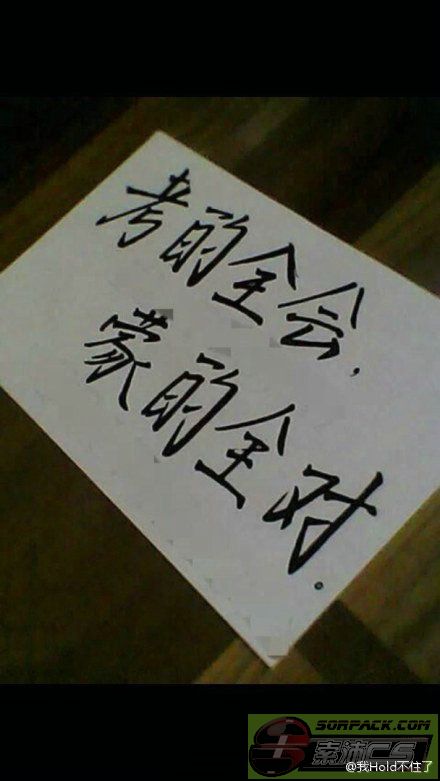 考的全会,
蒙的全对.
SORPACK.COM
索沛CS
@我Hold不住了